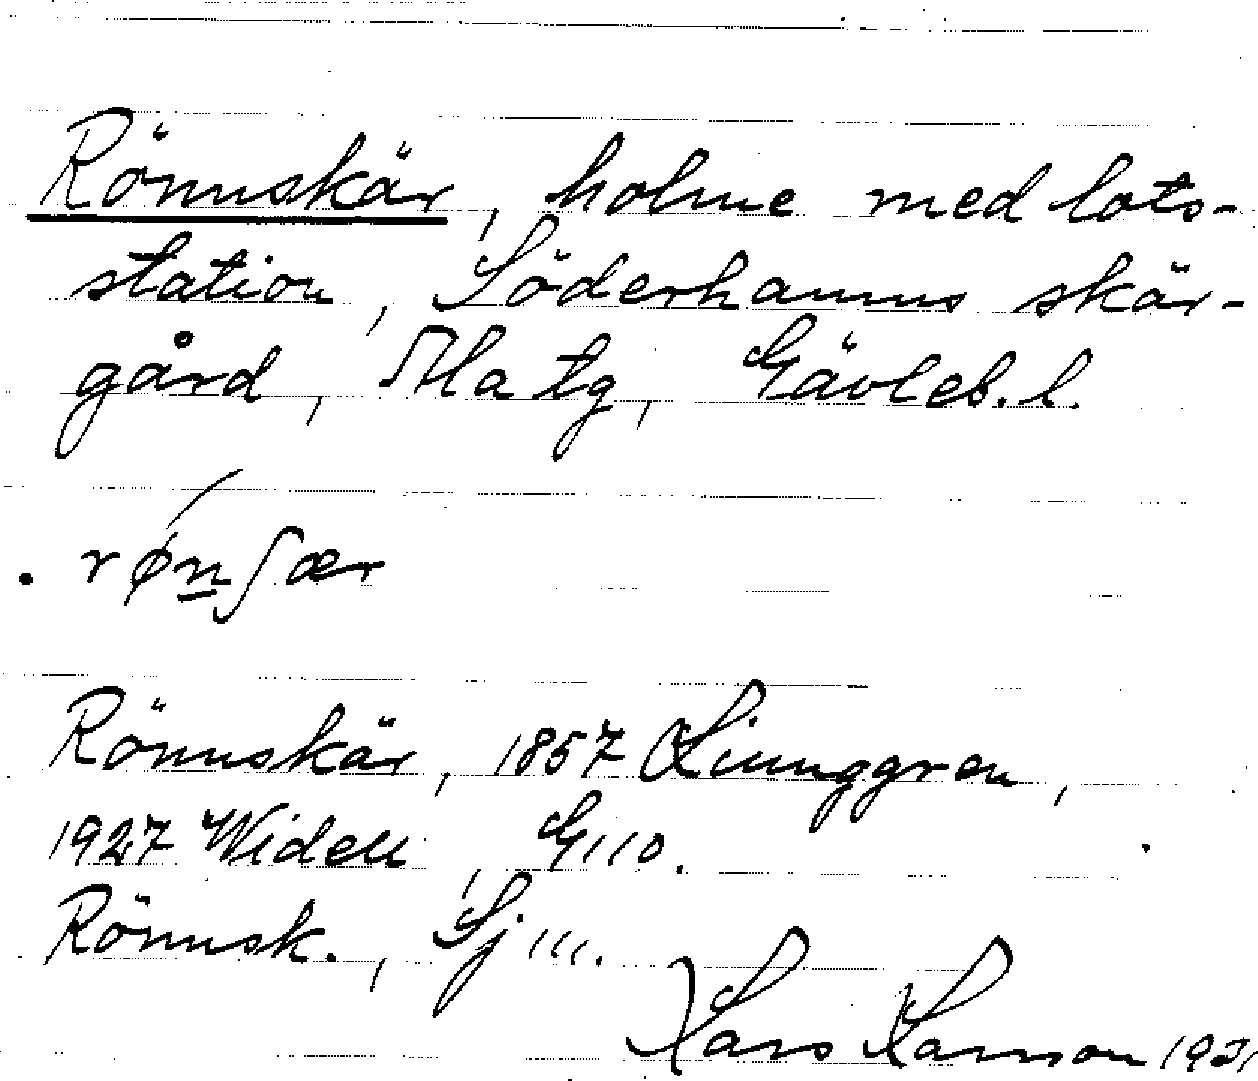 Rönnskär, holme med lots-
station, Söderhamns skär-
gård, Ala tg, Gävleb. l.
rønʃær
Rönnskär, 1857 Ljunggren,
1927 Widell, G 110.
Rönnsk., Sj 111.
Lars Larsson